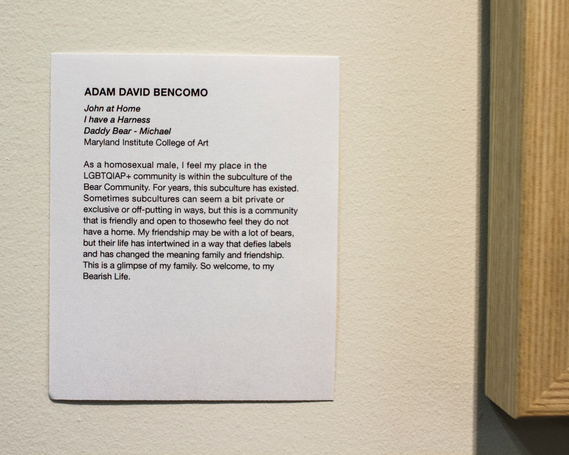 ADAM DAVID BENCOMO
John at Home
I have a Harness
Daddy Bear - Michael
Maryland Institute College of Art
As a homosexual male, I feel my place in the
LGBTQIAP+ community is within the subculture of the
Bear Community. For years, this subculture has existed.
Sometimes subcultures can seem a bit private or
exclusive or off-putting in ways, but this is a community
that is friendly and open to thosewho feel they do not
have a home. My friendship may be with a lot of bears,
but their life has intertwined in a way that defies labels
and has changed the meaning family and friendship.
This is a glimpse of my family. So welcome, to my
Bearish Life.